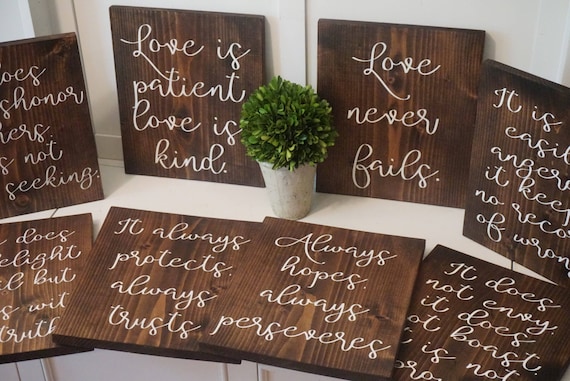 does
dishonor
others.
is not
seeking.
Love is
patient
love is
kind.
Love
never
fails.
It is
easily
angere
it keep
no reco
of wron
does
delight
il but
s wit
truth
It always
protects.
always
trusts.
Always
hopes.
always
perseveres
It does
not envy
it does
not boast.
it is no